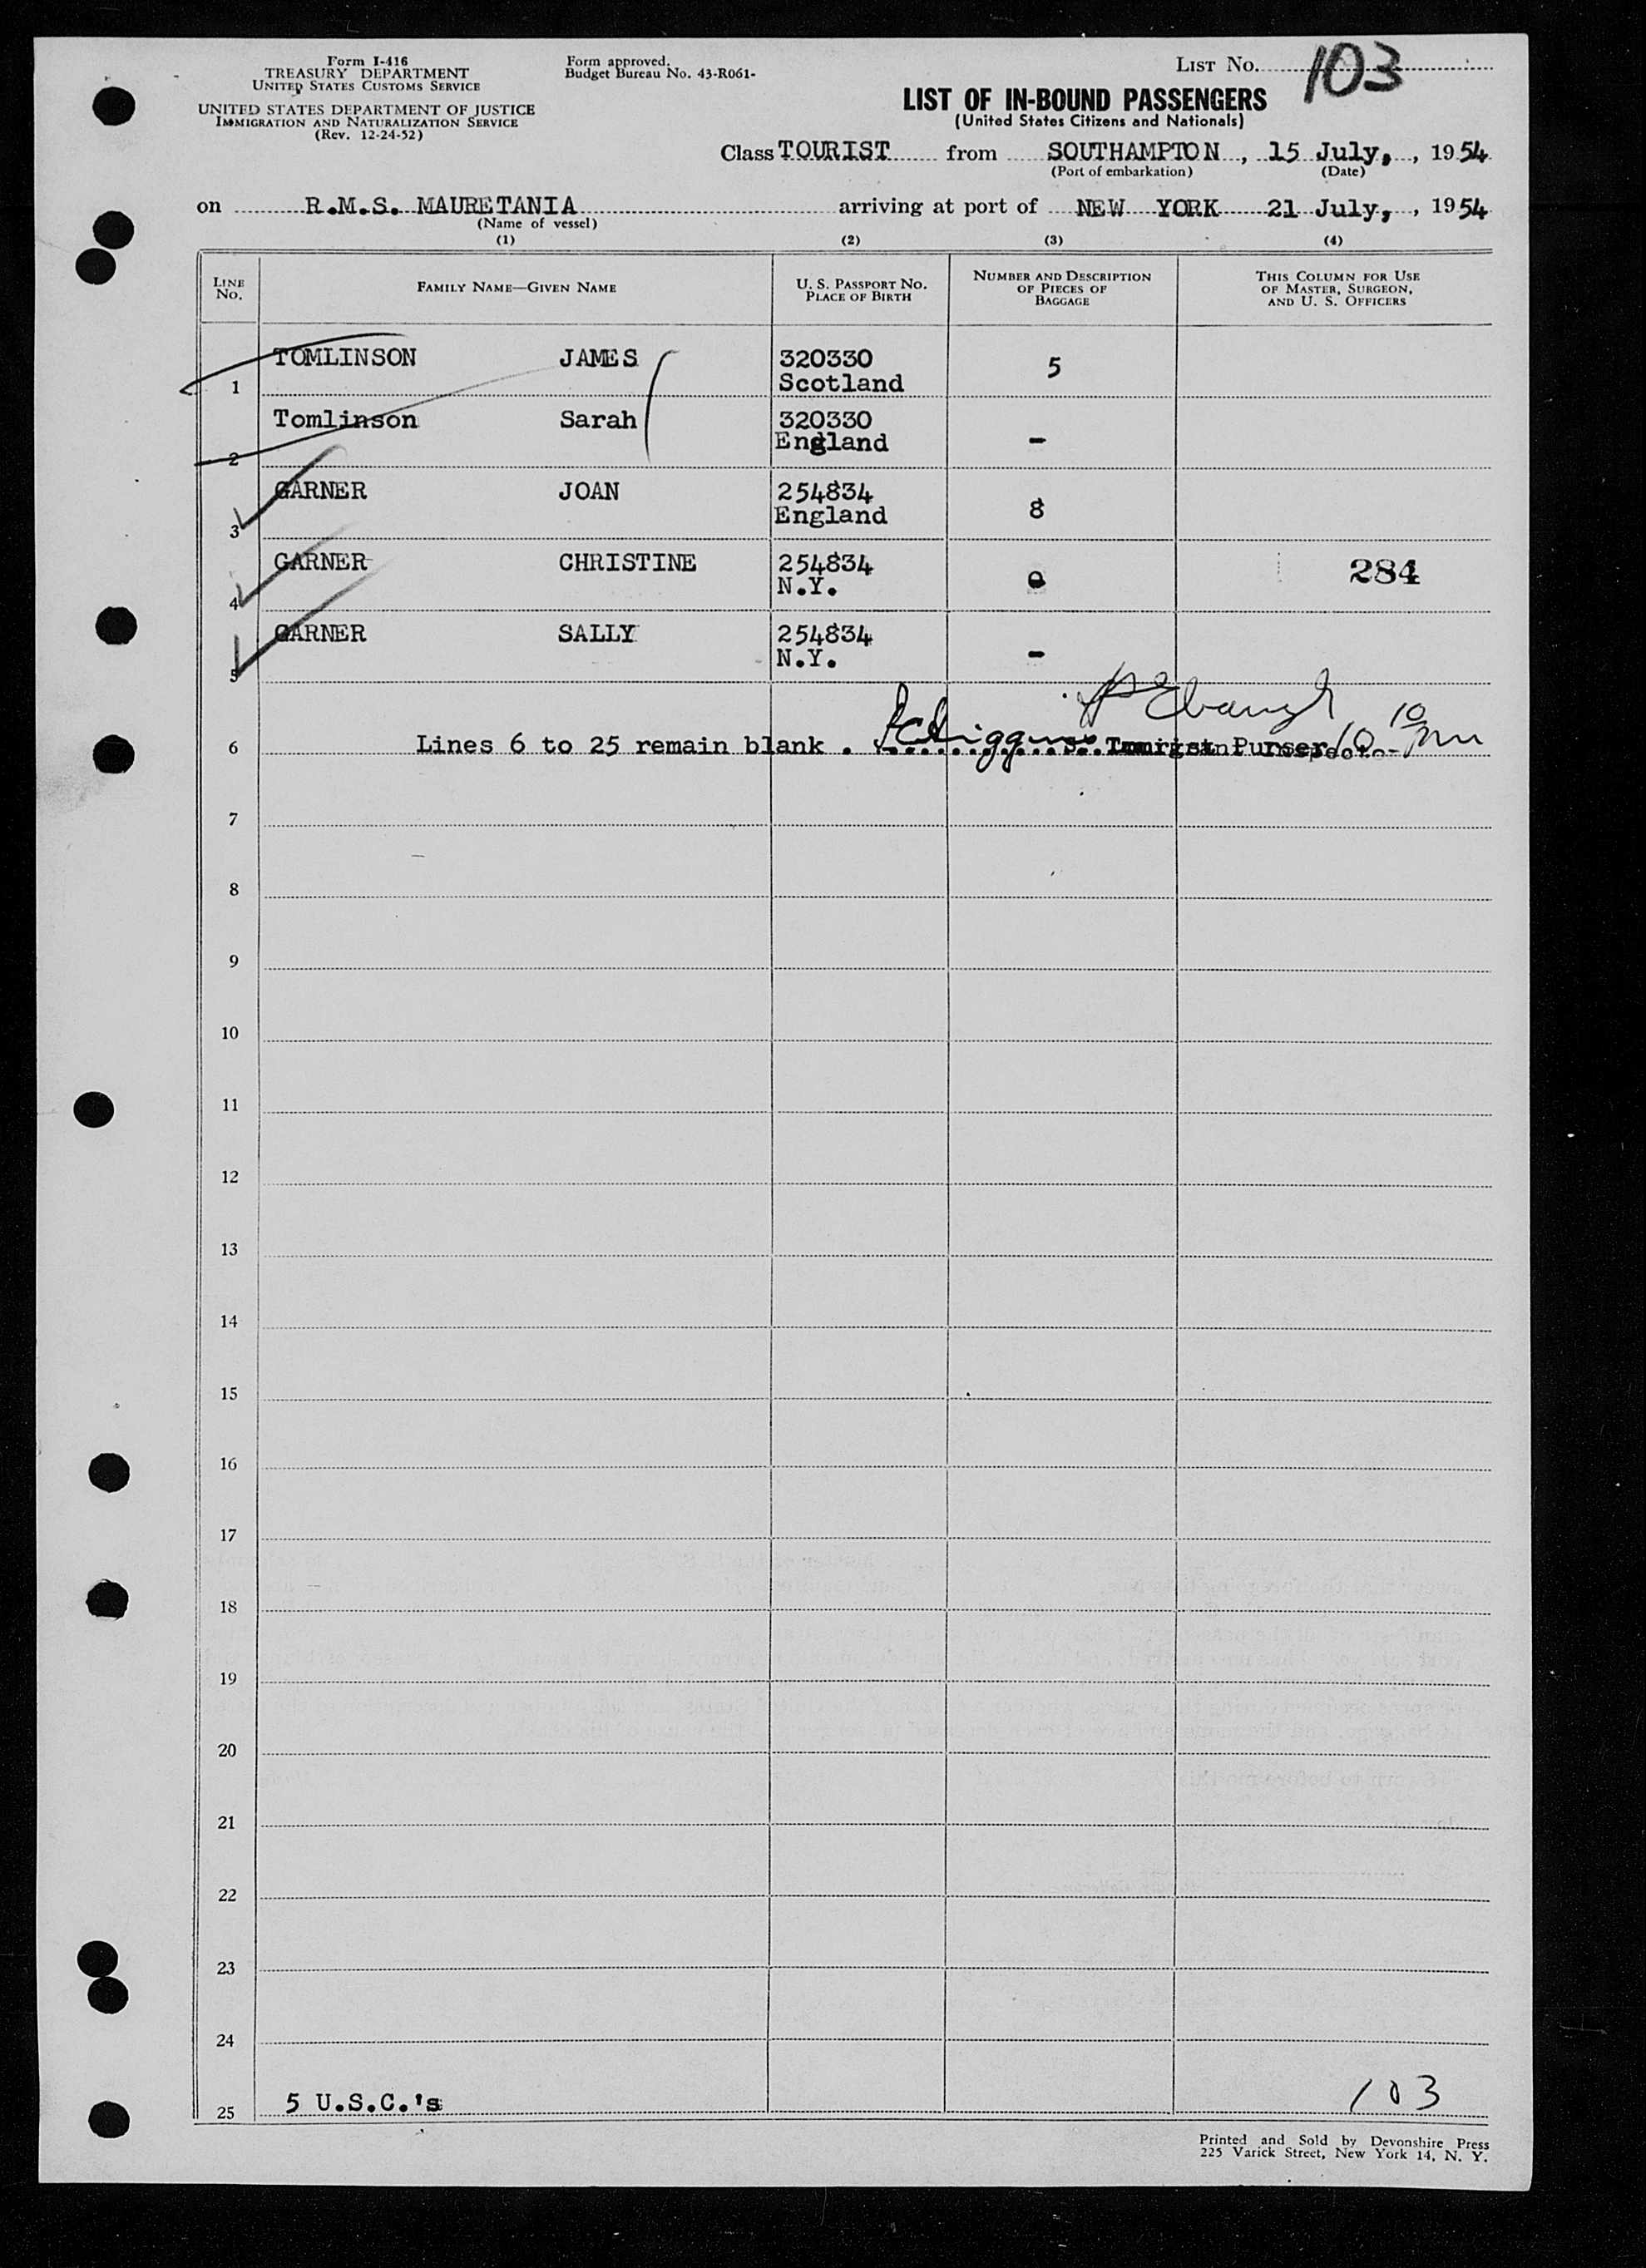 Form I-416
TREASURY DEPARTMENT
UNITED STATES CUSTOMS SERVICE
UNITED STATES DEPARTMENT OF JUSTICE
IMMIGRATION AND NATURALIZATION SERVICE
(Rev. 12-24-52)
Form approved.
Budget Bureau No. 43-R061-
LIST No. 103
LIST OF IN-BOUND PASSENGERS
(United States Citizens and Nationals)
Class TOURIST from SOUTHAMPTON, 15 July, , 1954
(Port of embarkation) (Date)
on R.M.S. MAURETANIA arriving at port of NEW YORK 21 July, , 1954
(Name of vessel)
(1) (2) (3) (4)
LINE No. FAMILY NAME—GIVEN NAME U. S. PASSPORT NO. PLACE OF BIRTH NUMBER AND DESCRIPTION OF PIECES OF BAGGAGE THIS COLUMN FOR USE OF MASTER, SURGEON, AND U. S. OFFICERS
1 TOMLINSON JAMES 320330 Scotland 5
2 Tomlinson Sarah 320330 England -
3 GARNER JOAN 254834 England 8
4 GARNER CHRISTINE 254834 N.Y. 284
5 GARNER SALLY 254834 N.Y. -
6 Lines 6 to 25 remain blank . Tourist Purser
7
8
9
10
11
12
13
14
15
16
17
18
19
20
21
22
23
24
25 5 U.S.C.'s 103
Printed and Sold by Devonshire Press
225 Varick Street, New York 14, N. Y.